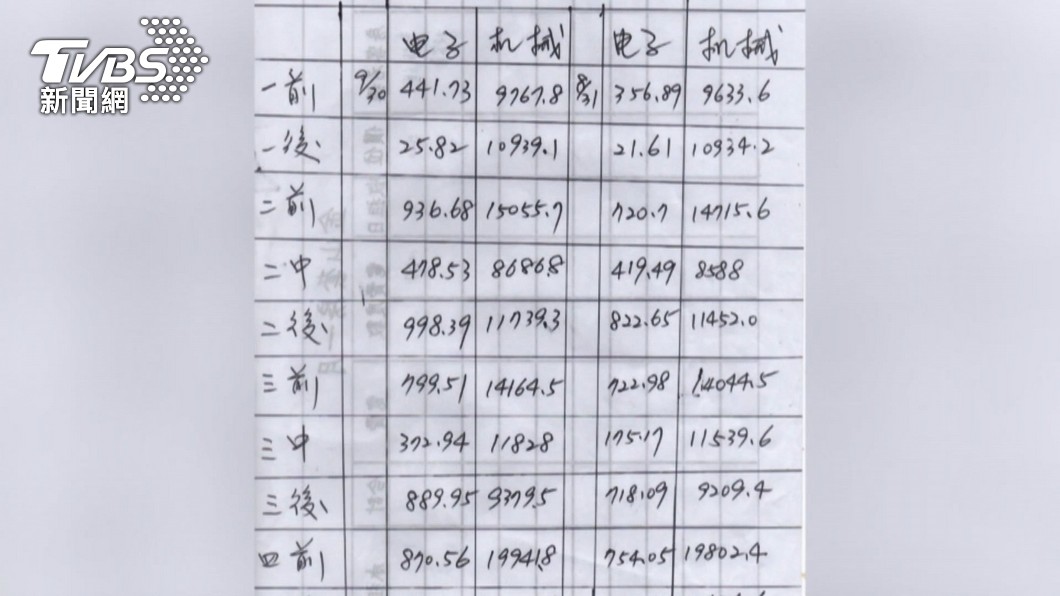 TVBS
新聞網
电子 机械 电子 机械
一前 9/30 441.73 9767.8 8/31 356.89 9633.6
一後 25.82 10939.1 21.61 10934.2
二前 936.68 15055.7 720.7 14715.6
二中 478.53 8686.8 419.49 8588
二後 998.39 11739.3 822.65 11452.0
三前 799.51 14164.5 722.98 14044.5
三中 372.94 11828 175.17 11539.6
三後 889.95 9379.5 718.09 9209.4
四前 870.56 19941.8 754.05 19802.4